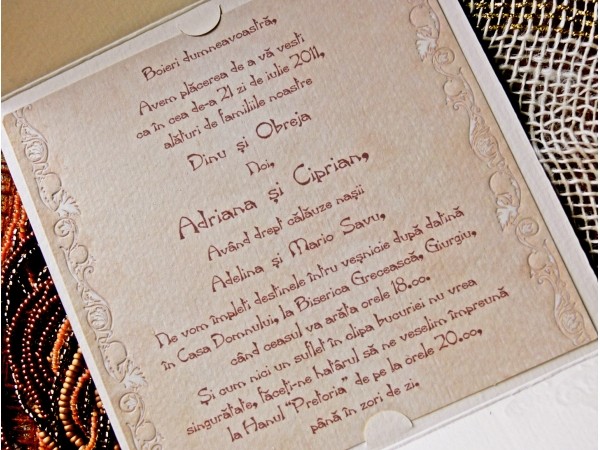 Boieri dumneavoastră,
Avem plăcerea de a vă vesti
ca în cea de-a 21 zi de iulie 2011,
alături de familiile noastre
Dinu și Obreja
Noi,
Adriana și Ciprian,
Având drept călăuze nașii
Adelina și Mario Savu,
Ne vom împleti destinele întru veșnicie după datină
în Casa Domnului, la Biserica Grecească, Giurgiu,
când ceasul va arăta orele 18.00.
Și cum nici un suflet în clipa bucuriei nu vrea
singurătate, faceți-ne hatârul să ne veselim împreună
la Hanul "Pretoria" de pe la orele 20.00,
până în zori de zi.